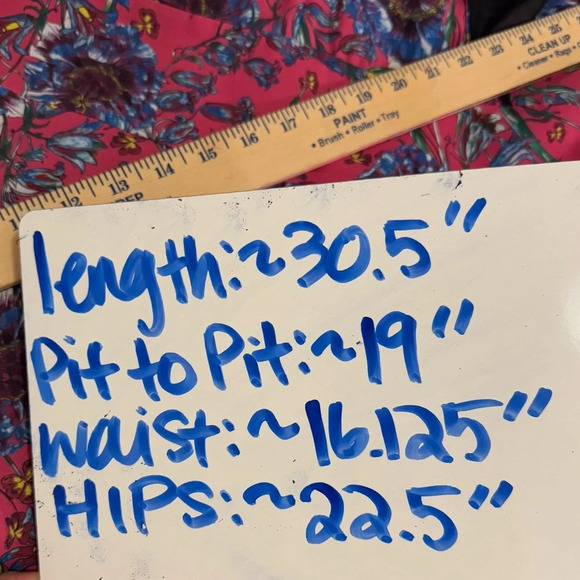 12 13 14 15 16 17 18 19 20 21 22 23 24 25
CLEAN UP
• Cleaner • Rags •
PAINT
• Brush • Roller • Tray
length: ~30.5"
Pit to Pit: ~19"
waist: ~16.125"
HIPS: ~22.5"